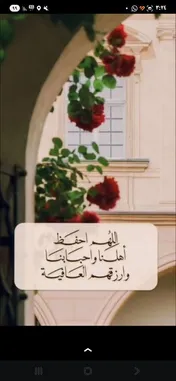 ٣:٢٤
اللهم احفظ
أهلنا وأحبابنا
وارزقهم العافية